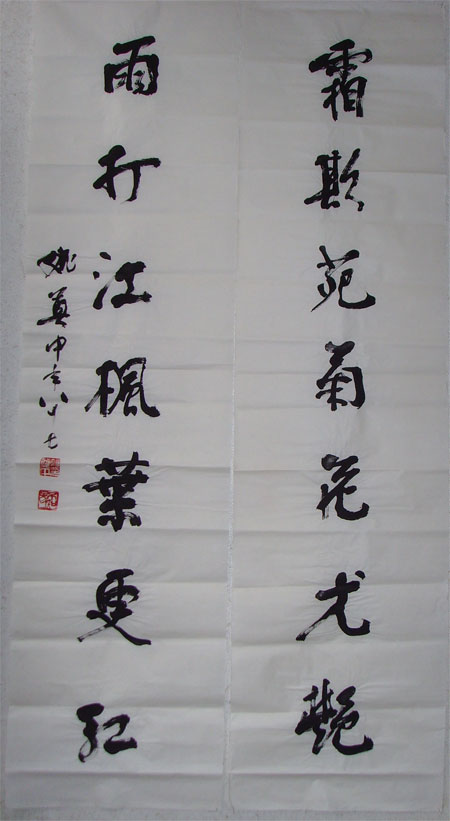 霜欺苑菊花尤艷
雨打江楓葉更紅
姚奠中年八十七